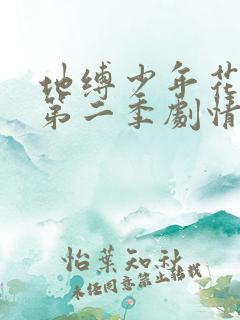 地缚少年花
第二季劇情
怡葉知秋
未经同意禁止转载